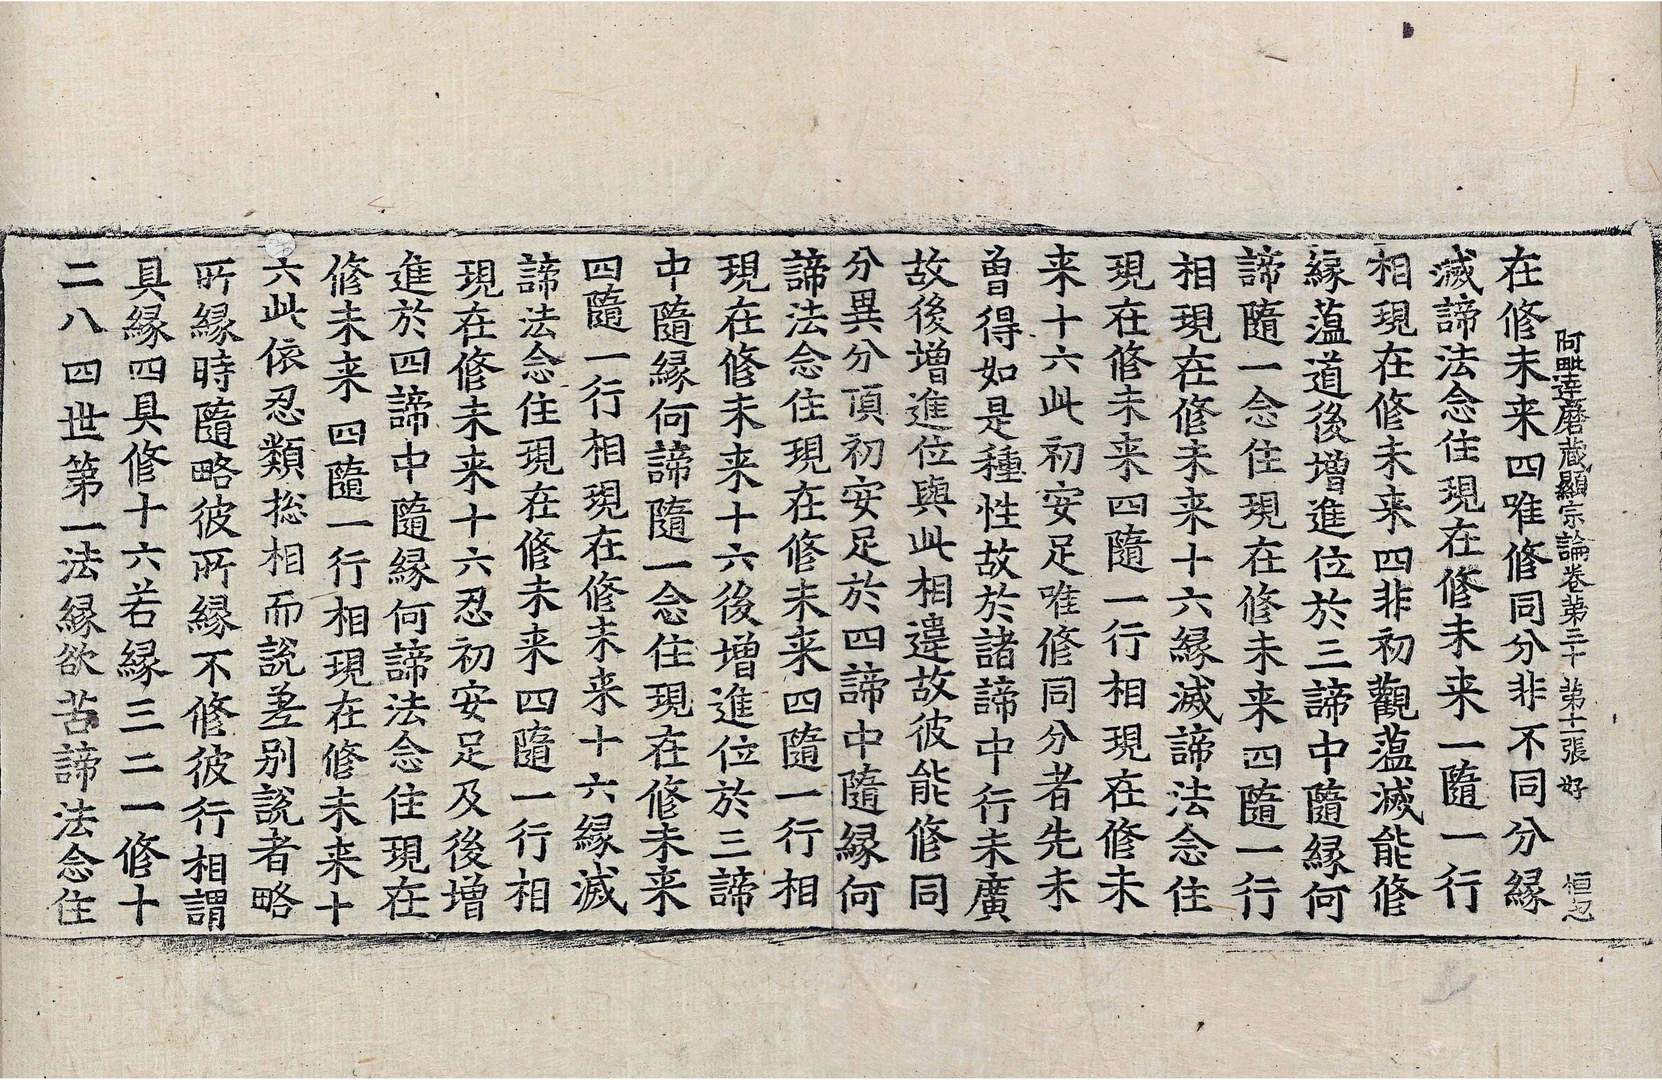 阿毗達磨藏顯宗論卷第三十 第十一張 好
在修未来四唯修同分非不同分緣
滅諦法念住現在修未来一隨一行
相現在修未来四非初觀蘊滅能修
緣蘊道後增進位於三諦中隨緣何
諦隨一念住現在修未来四隨一行
相現在修未来十六緣滅諦法念住
現在修未来四隨一行相現在修未
来十六此初安足唯修同分者先未
曾得如是種性故於諸諦中行未廣
故後增進位與此相違故彼能修同
分異分頂初安足於四諦中隨緣何
諦法念住現在修未来四隨一行相
現在修未来十六後增進位於三諦
中隨緣何諦隨一念住現在修未来
四隨一行相現在修未来十六緣滅
諦法念住現在修未来四隨一行相
現在修未来十六忍初安足及後增
進於四諦中隨緣何諦法念住現在
修未来四隨一行相現在修未来十
六此依忍類揔相而說差别說者略
所緣時隨略彼所緣不修彼行相謂
具緣四具修十六若緣三二一修十
二八四世第一法緣欲苦諦法念住